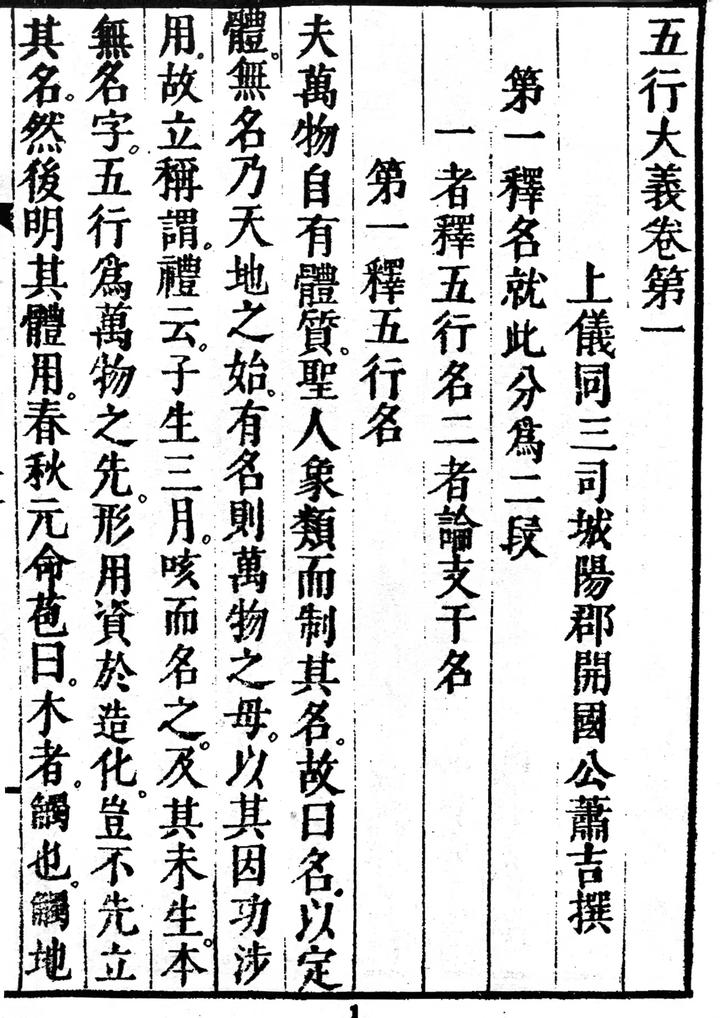 五行大義卷第一
上儀同三司城陽郡開國公蕭吉撰
第一釋名就此分爲二段
一者釋五行名二者論支干名
第一釋五行名
夫萬物自有體質。聖人象類而制其名。故曰名。以定
體。無名乃天地之始。有名則萬物之母。以其因功涉
用。故立稱謂。禮云。子生三月。咳而名之。及其未生。本
無名字。五行爲萬物之先。形用資於造化。豈不先立
其名。然後明其體用。春秋元命苞曰。木者。觸也。觸地
1